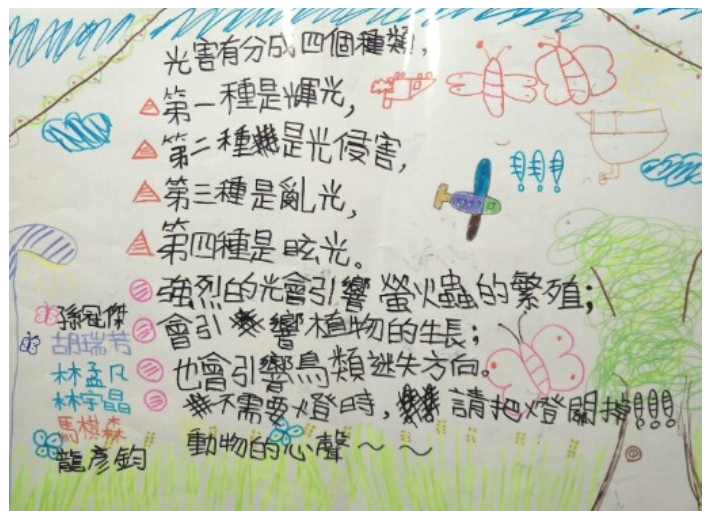 光害有分成四個種類,
第一種是輝光,
第二種是光侵害,
第三種是亂光,
第四種是眩光。
強烈的光會引響螢火蟲的繁殖;
會引響植物的生長;
也會引響鳥類迷失方向。
不需要燈時,請把燈關掉!!!
動物的心聲~~
孫冠傑
胡瑞芳
林孟凡
林宇晶
馬楷森
龍彥鈞